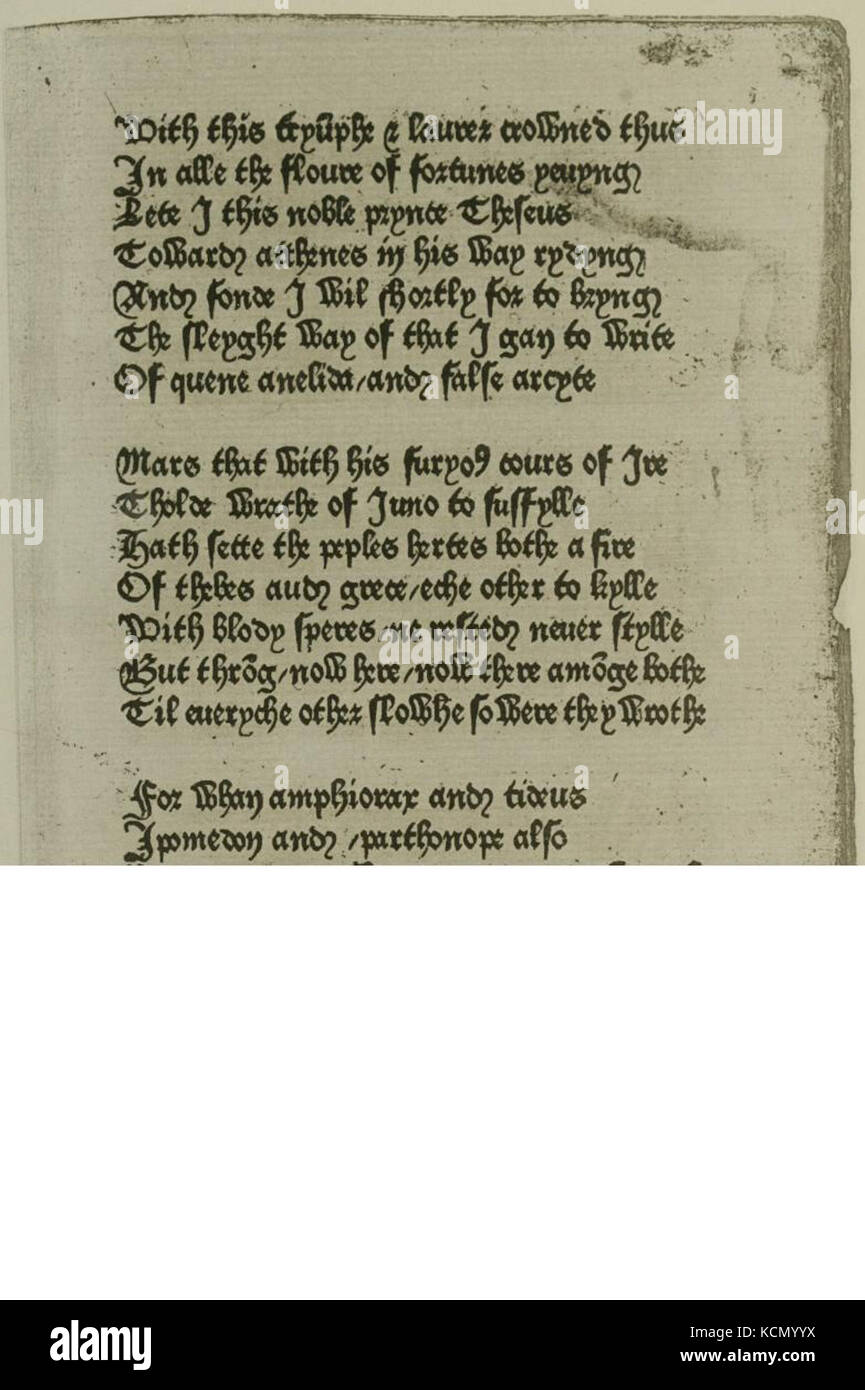 With this tryūphe & laurer crowned thus
In alle the floure of fortunes yeuyng
Lete I this noble prynce Theseus
Toward athenes in his way rydyng
And fonde I wil shortly for to bryng
The sleyght way of that I gan to write
Of quene anelida/and false arcyte
Mars that with his furyoꝰ cours of Ire
Tholde wrathe of Juno to fulfylle
Hath sette the peples hertes bothe a fire
Of thebes aud grece/eche other to kylle
With blody speres ne rested neuer stylle
But thrōg/now here/now there amōge bothe
Til eueryche other slowhe so were they wrothe
For whan amphiorax and tideus
Ipomedon and /parthonope also
alamy
Image ID: KCMYYX
www.alamy.com